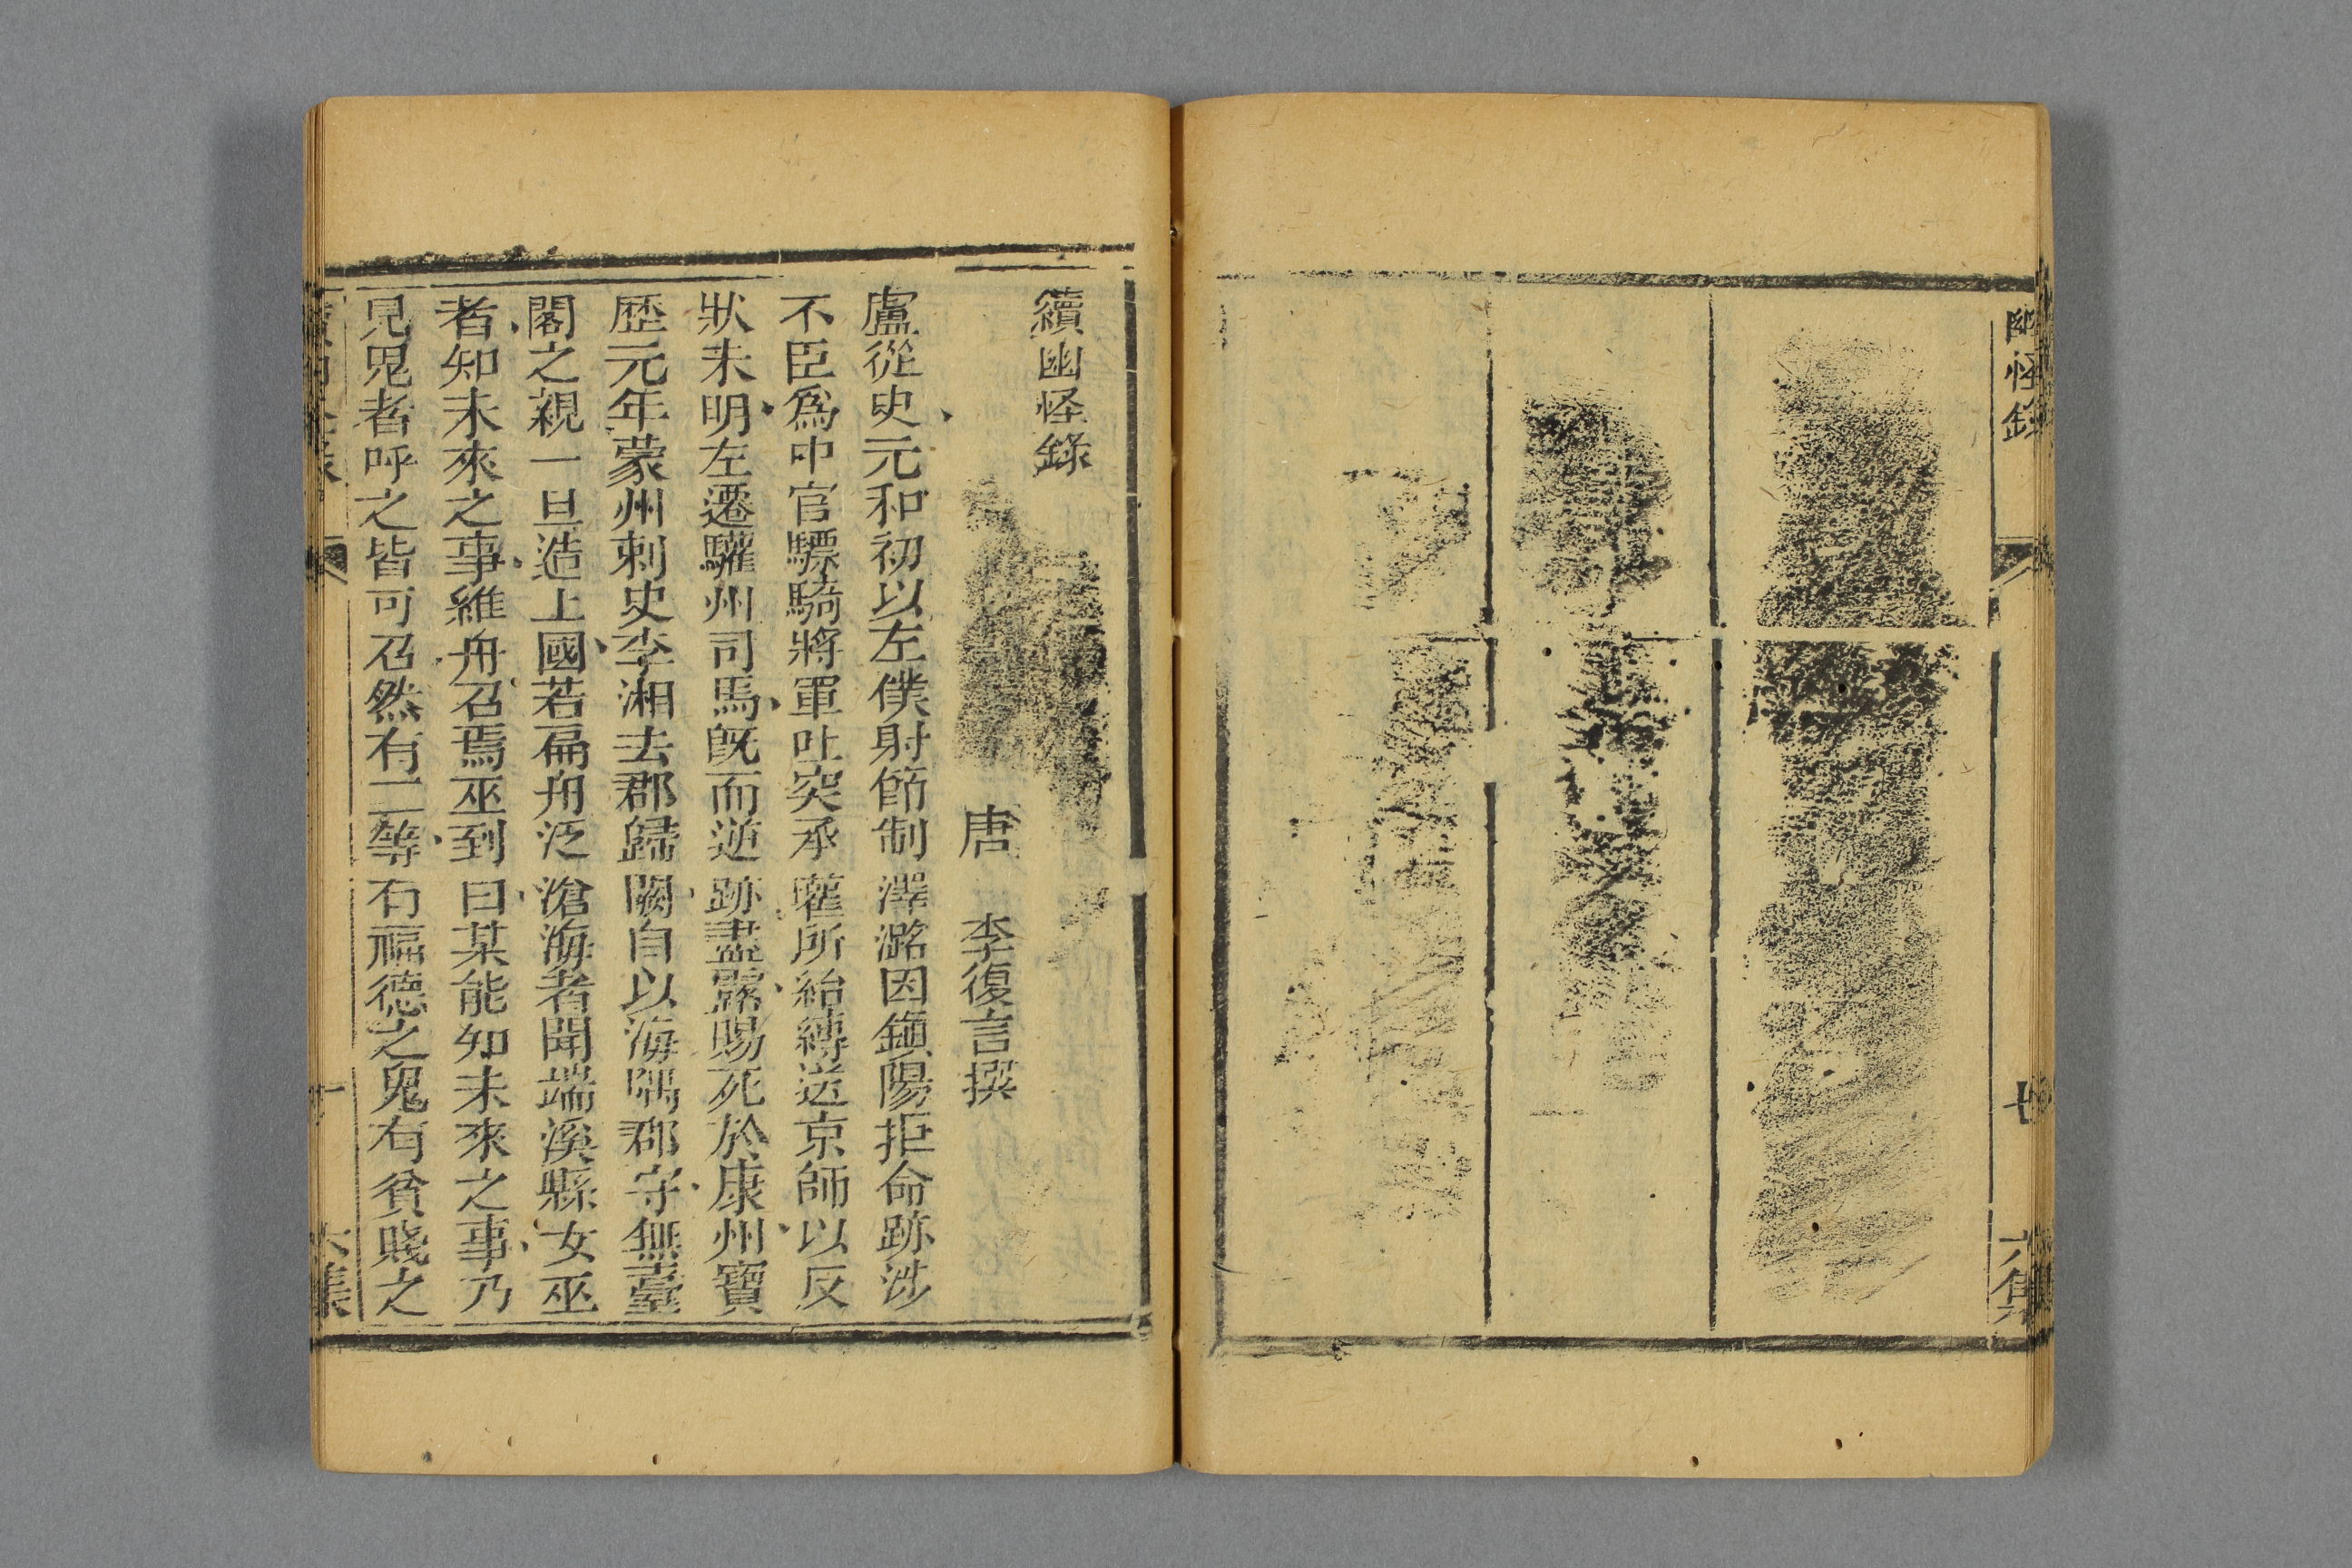 幽怪錄
六集
續幽怪錄
唐 李復言撰
盧從史元和初以左僕射節制澤潞因鎭陽拒命跡涉
不臣爲中官驃騎將軍吐突承璀所紿縳送京師以反
狀未明左遷驩州司馬旣而逆跡盡露賜死於康州寶
歷元年蒙州刺史李湘去郡歸闕自以海隅郡守無臺
閣之親一旦造上國若扁舟泛滄海者聞端溪縣女巫
者知未來之事維舟召焉巫到曰某能知未來之事乃
見鬼者呼之皆可召然有二等有福德之鬼有貧賤之